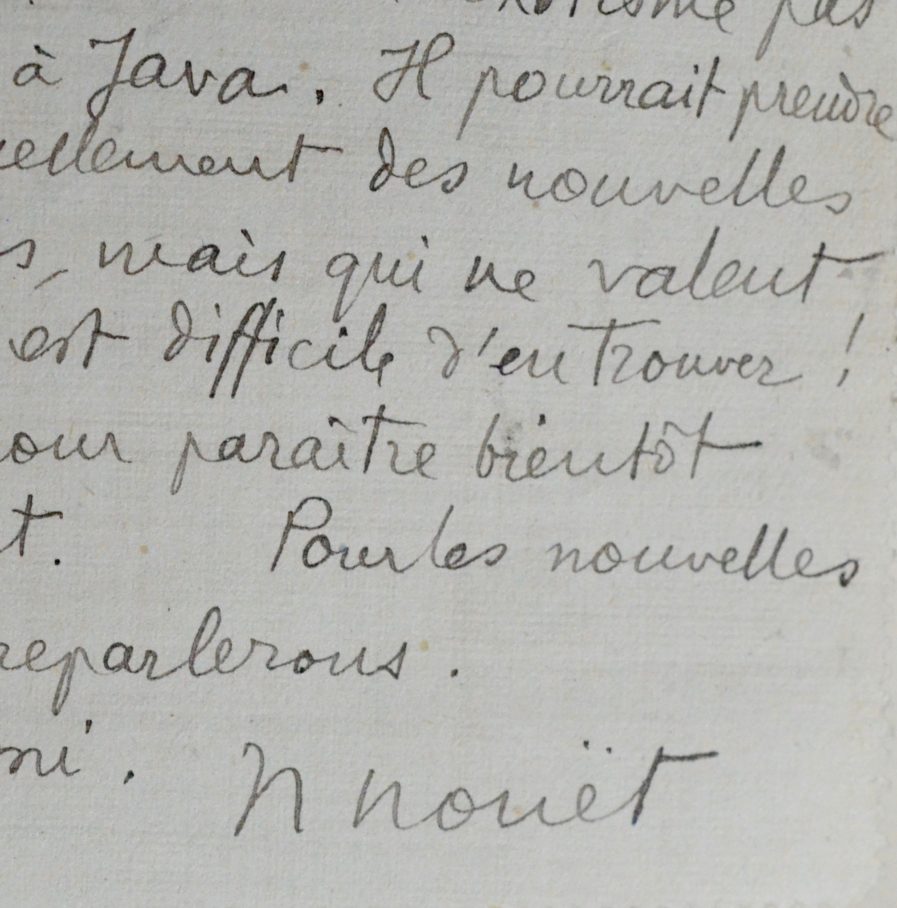 exotisme pas
à Java. Il pourrait prendre
ellement des nouvelles
s, mais qui ne valent
est difficile d'en trouver !
our paraître bientôt
t. Pour les nouvelles
reparlerons.
mi. N nouët